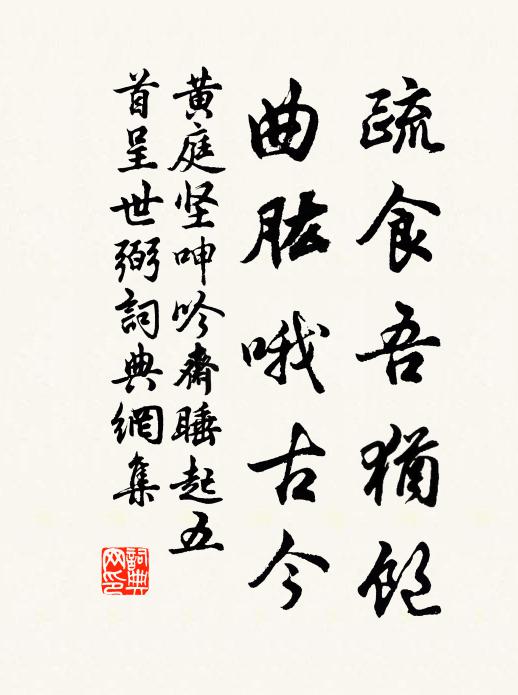 疏食吾猶飽
曲肱哦古今
黄庭坚呻吟齋睡起五
首呈世弼詞典網集
詞典網印